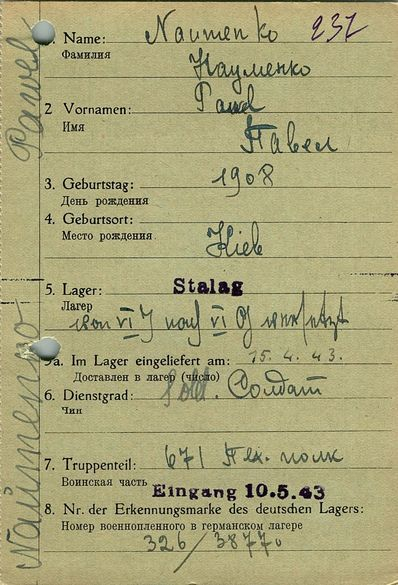 Naumenko 237
1. Name:
Фамилия Науменко
2 Vornamen: Pawel
Имя Павел
3. Geburtstag: 1908
День рождения
4. Geburtsort:
Место рождения Kiew
5. Lager: Stalag
Лагер
von VI J nach VI G versetzt
5a. Im Lager eingeliefert am: 15.4.43.
Доставлен в лагер (число)
6. Dienstgrad: Sold. Солдат
Чин
7. Truppenteil: 671 Пех. полк
Воинская часть Eingang 10.5.43
8. Nr. der Erkennungsmarke des deutschen Lagers:
Номер военнопленного в германском лагере
326/38770
Naumenko Pawel